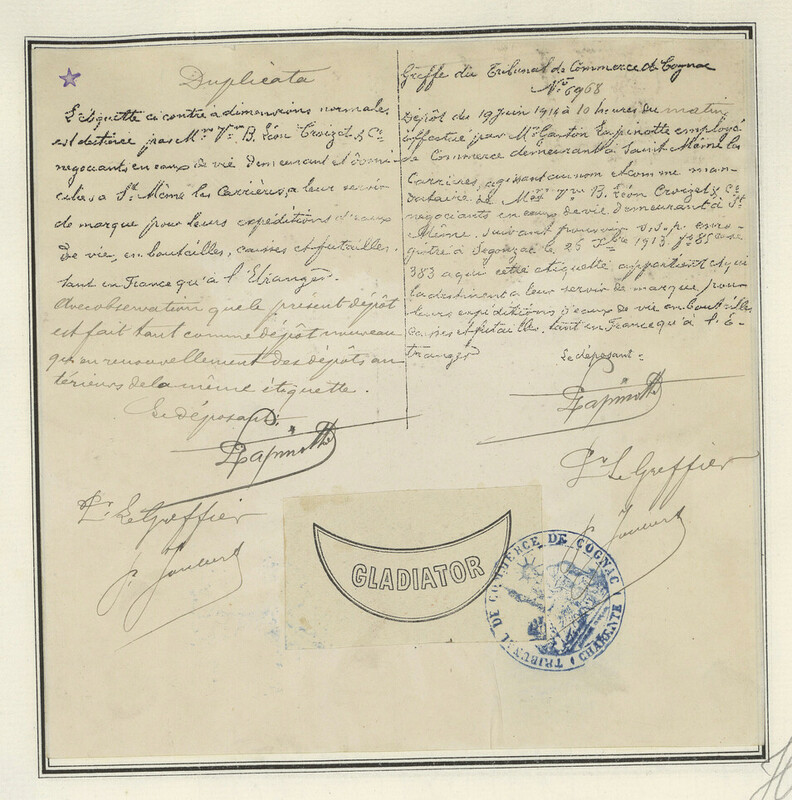 Duplicata
L'étiquette ci contre à dimensions normales
est destinée par Mrs Vve B. Léon Croizet & Cie
négociants en eaux de vie demeurant et domi
ciliés à St Même les Carrières, a leur servir
de marque pour leurs expéditions d'eaux
de vie, en bouteilles, caisses et futailles,
tant en France qu'à l'Etranger.
Avec observation que le présent dépôt
est fait tant comme dépôt nouveau
qu'au renouvellement des dépôts an
térieurs de la même étiquette.
Le déposant:
Lapinotte
Pr Le Greffier
Greffe du Tribunal de Commerce de Cognac
No 6968
Dépôt du 19 Juin 1914 à 10 heures du matin
effectué par Mr Gaston Lapinotte employé
de Commerce demeurant à Saint Même les
Carrières, agissant au nom et comme man-
dataire de Mrs Vve B. Léon Croizet & Cie
négociants en eaux de vie demeurant à St
Même, suivant pouvoir s.s.p. enre-
gistré à Segonzac le 26 1913 85 case
383 a qui cette étiquette appartient et qui
la destinent a leur servir de marque pour
leurs expéditions d'eaux de vie en bouteilles
caisses et futailles, tant en France qu'à l'E-
tranger
Le déposant:
Lapinotte
Pr Le Greffier
GLADIATOR
TRIBUNAL DE COMMERCE DE COGNAC
(CHARENTE)